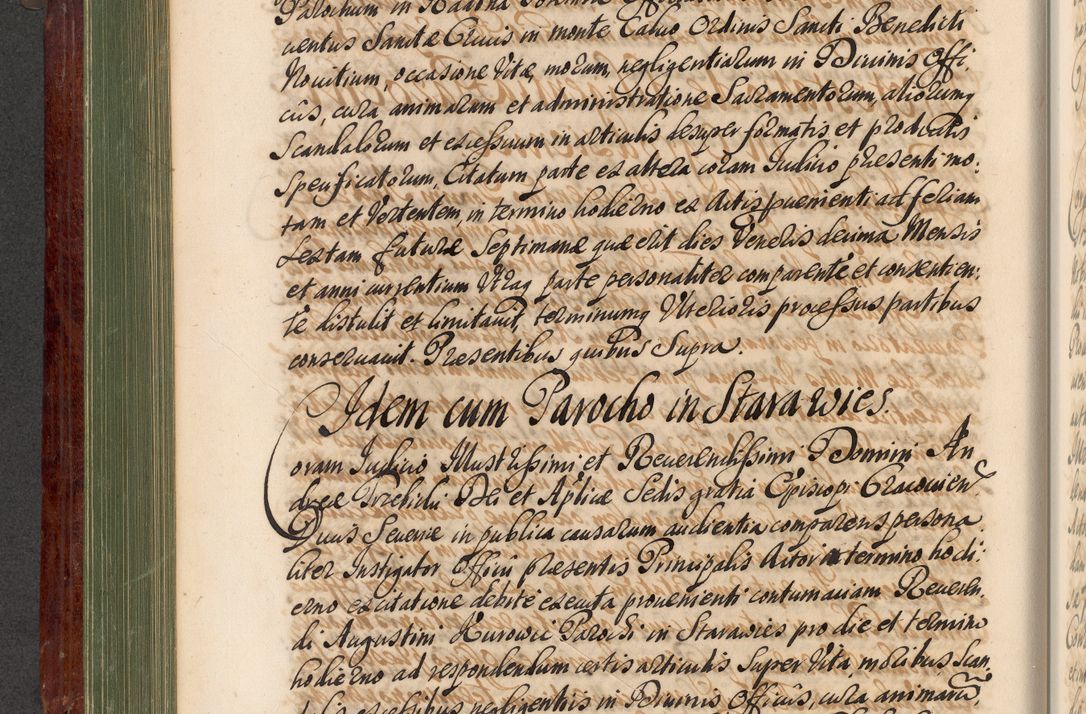 Parochum in Radona
uentus Sanctæ Crucis in monte Caluo Ordinis Sancti Benedicti
Nouitium, occasione Vitæ, morum, negligentiarum in Diuinis Offi:
cijs, cura animarum et administratione Sacramentorum, aliorumq
Scandalorum et excessuum in articulis desuper formatis et productis
Specificatorum, Citatum parte ex altera coram Iudicio præsenti mo:
tam et Vertentem, in termino hodierno ex Actis prouenienti ad feriam
Sextam futuræ Septimanæ quæ erit dies Veneris decima Mensis
et anni currentium Vtraq parte personaliter comparente et consentien:
te distulit et limitauit, terminumq Vlterioris processus partibus
conseruauit. Præsentibus quibus Supra.
Idem cum Parocho in Starawies.
Coram Iudicio Illustrissimi et Reuerendissimi Domini An
dreæ Trzebicki Dei et Aplicæ Sedis gratia Episcopi Cracouien
Ducis Seueriæ in publica causarum audientia comparens persona
liter Instigator Officij præsentis Principalis Actor in termino hodi:
erno ex citatione debite executa prouenienti contumaciam Reueren,
di Augustini Kurowic Parochi in Starawies pro die et termino
hodierno ad respondendum certis articulis Super Vita, moribus, Scan
dalis excessibus negligentiis in Diuinis Officijs, cura animarū,